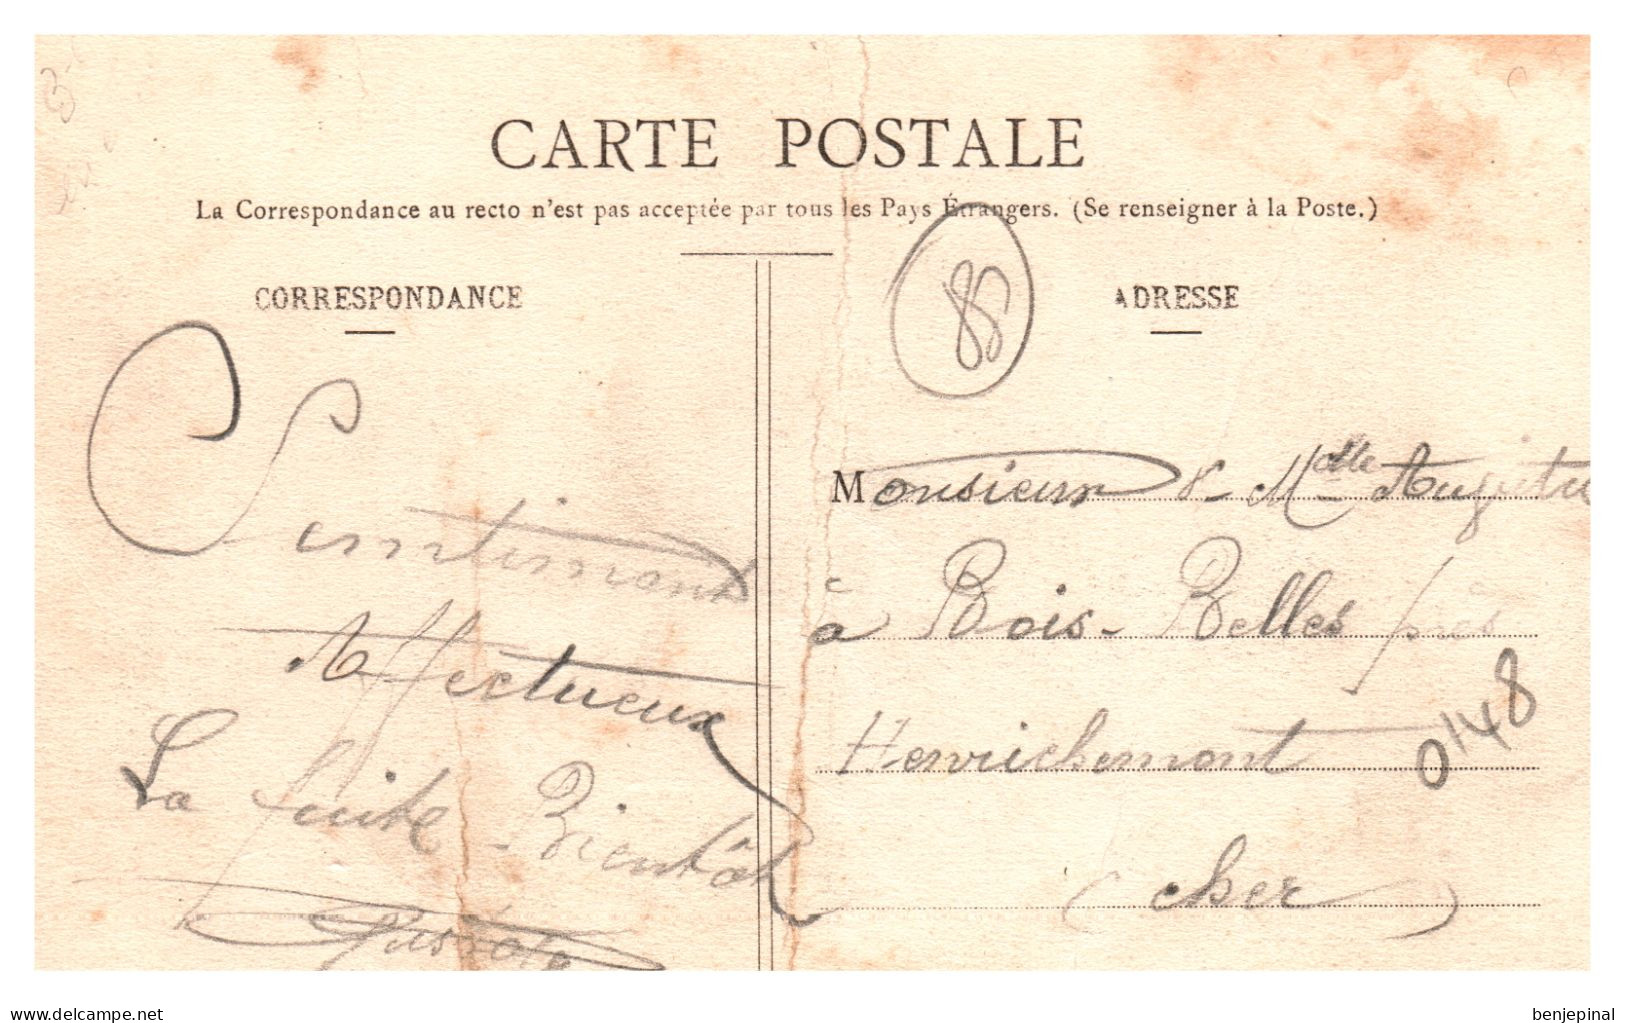 CARTE POSTALE
La Correspondance au recto n'est pas acceptée par tous les Pays Étrangers. (Se renseigner à la Poste.)
CORRESPONDANCE
Sentiments
Affectueux
La suite Bientôt
85
ADRESSE
Monsieur & Mdlle
à Bois-Belles près
Henrichemont
(cher)
0148
www.delcampe.net
benjepinal